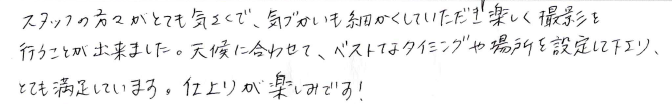 スタッフの方々がとても気さくで、気づかいも細かくしていただき楽しく撮影を
行うことが出来ました。天候に合わせて、ベストなタイミングや場所を設定して下さり、
とても満足しています。仕上りが楽しみです!